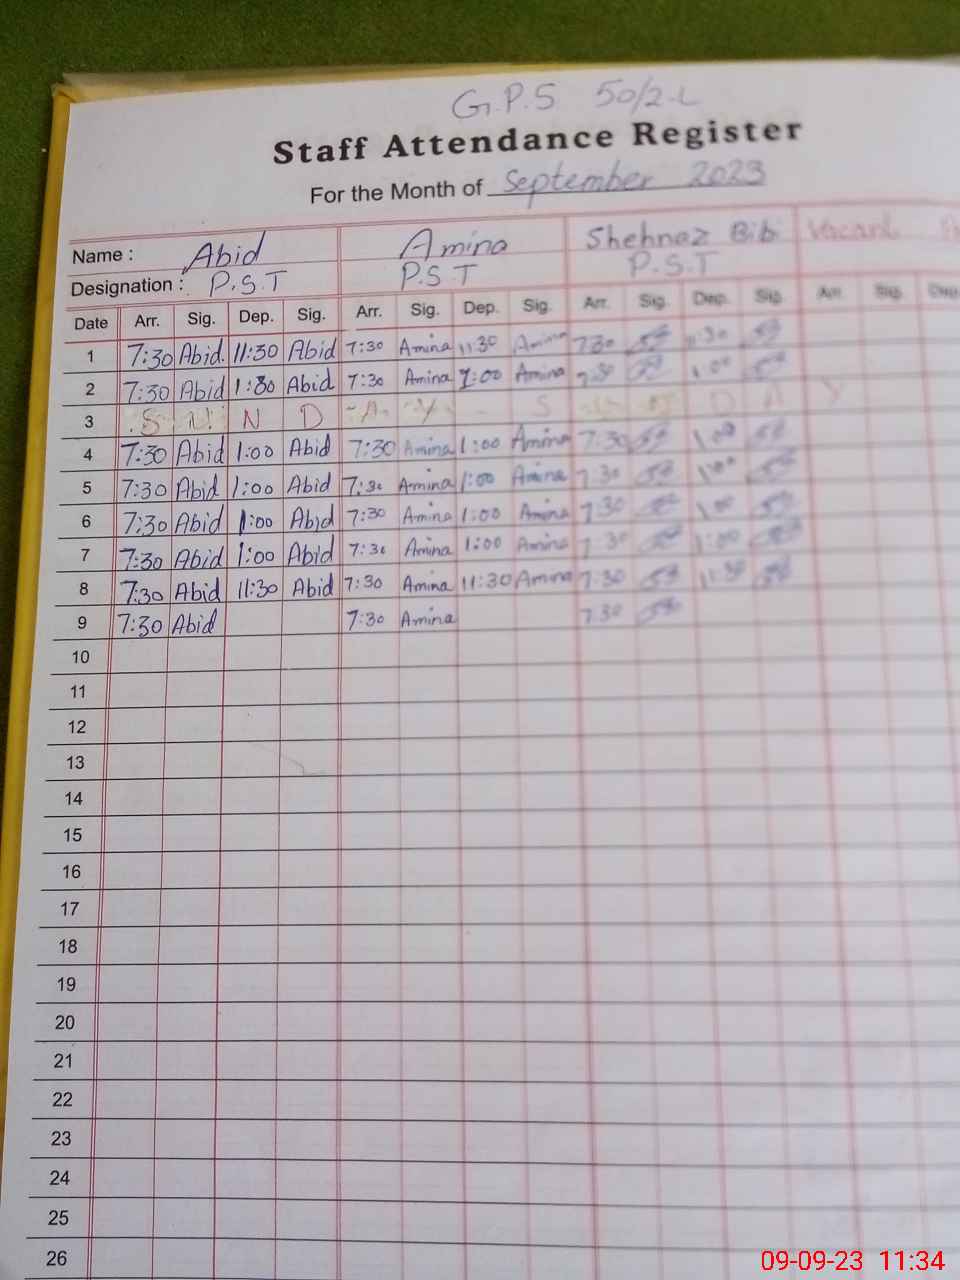 G.P.S 50/2-L
Staff Attendance Register
For the Month of September 2023
Name : Abid Amina Shehnaz Bibi Vacant
Designation : P.S.T P.S.T P.S.T
Date Arr. Sig. Dep. Sig. Arr. Sig. Dep. Sig. Arr. Sig. Dep. Sig. Arr. Sig. Dep.
1 7:30 Abid 11:30 Abid 7:30 Amina 11:30 Amina 7:30 11:30
2 7:30 Abid 1:30 Abid 7:30 Amina 1:00 Amina 7:30 1:00
3 S U N D A Y S D A Y
4 7:30 Abid 1:00 Abid 7:30 Amina 1:00 Amina 7:30 1:00
5 7:30 Abid 1:00 Abid 7:30 Amina 1:00 Amina 7:30 1:00
6 7:30 Abid 1:00 Abid 7:30 Amina 1:00 Amina 7:30 1:00
7 7:30 Abid 1:00 Abid 7:30 Amina 1:00 Amina 7:30 1:00
8 7:30 Abid 11:30 Abid 7:30 Amina 11:30 Amina 7:30 11:30
9 7:30 Abid 7:30 Amina 7:30
10
11
12
13
14
15
16
17
18
19
20
21
22
23
24
25
26
09-09-23 11:34